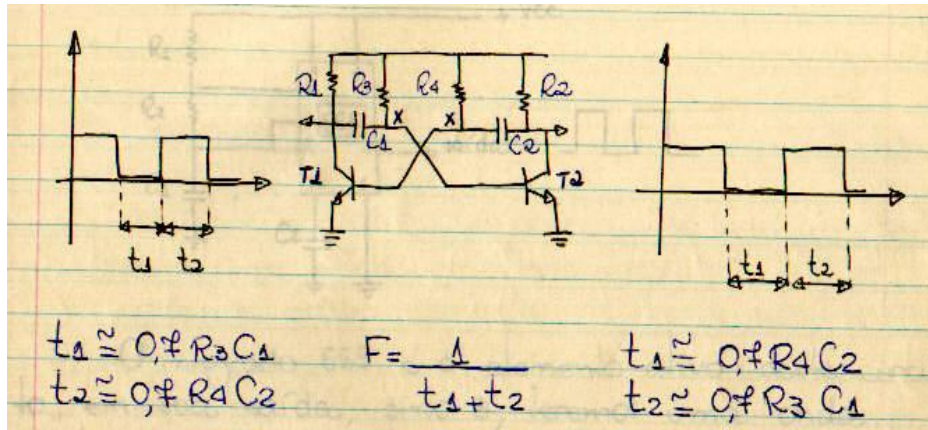 + Vcc
R1 R3 R4 R2
x x
C1 C2
T1 T2
t1 t2
t1 t2
t1 ≅ 0,7 R3 C1
t2 ≅ 0,7 R4 C2
F = 1 / t1 + t2
t1 ≅ 0,7 R4 C2
t2 ≅ 0,7 R3 C1